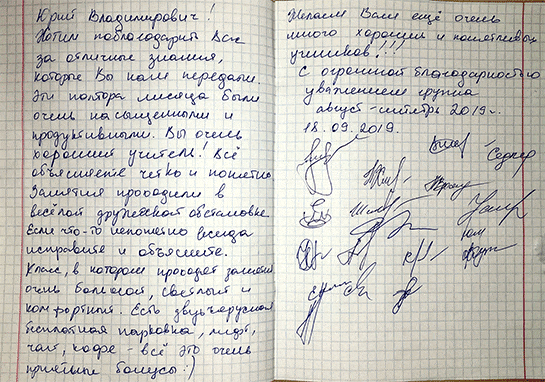 Юрий Владимирович!
Хотим поблагодарить Вас
за отличные знания,
которые Вы нам передали.
Эти полтора месяца были
очень насыщенными и
продуктивными. Вы очень
хороший учитель! Всё
объясняете чётко и понятно.
Занятия проходили в
весёлой дружеской обстановке.
Если что-то непонятно всегда
исправите и объясните.
Класс, в котором проходят занятия
очень большой, светлый и
комфортный. Есть двухъярусная
бесплатная парковка, лифт,
чай, кофе - всё это очень
приятные бонусы :)
Желаем Вам ещё очень
много хороших и понятливых
учеников!!!
С огромной благодарностью
уважением группа
август-сентябрь 2019г.
18.09.2019.